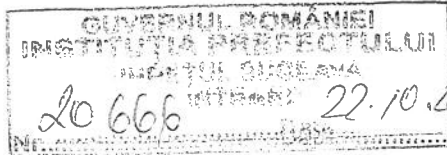 GUVERNUL ROMÂNIEI
INSTITUȚIA PREFECTULUI
JUDEȚUL SUCEAVA
INTRARE
20 666 22.10.
Nr.